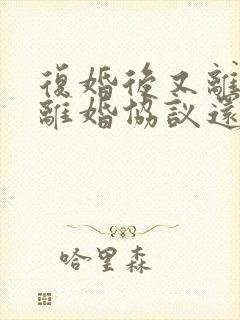 復婚後又離
離婚協議還
哈里森